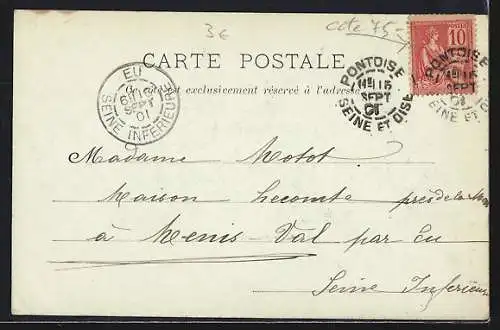 3€
cote 75-
CARTE POSTALE
Ce côté est exclusivement réservé à l'adresse
10
PONTOISE
15
SEPT
01
SEINE ET OISE
PONTOISE
15
SEPT
01
SEINE ET OISE
EU
SEPT
01
SEINE INFERIEURE
6
Madame Motot
Maison Lecomte près de la
à Menis-Val par Eu
Seine Inférieure